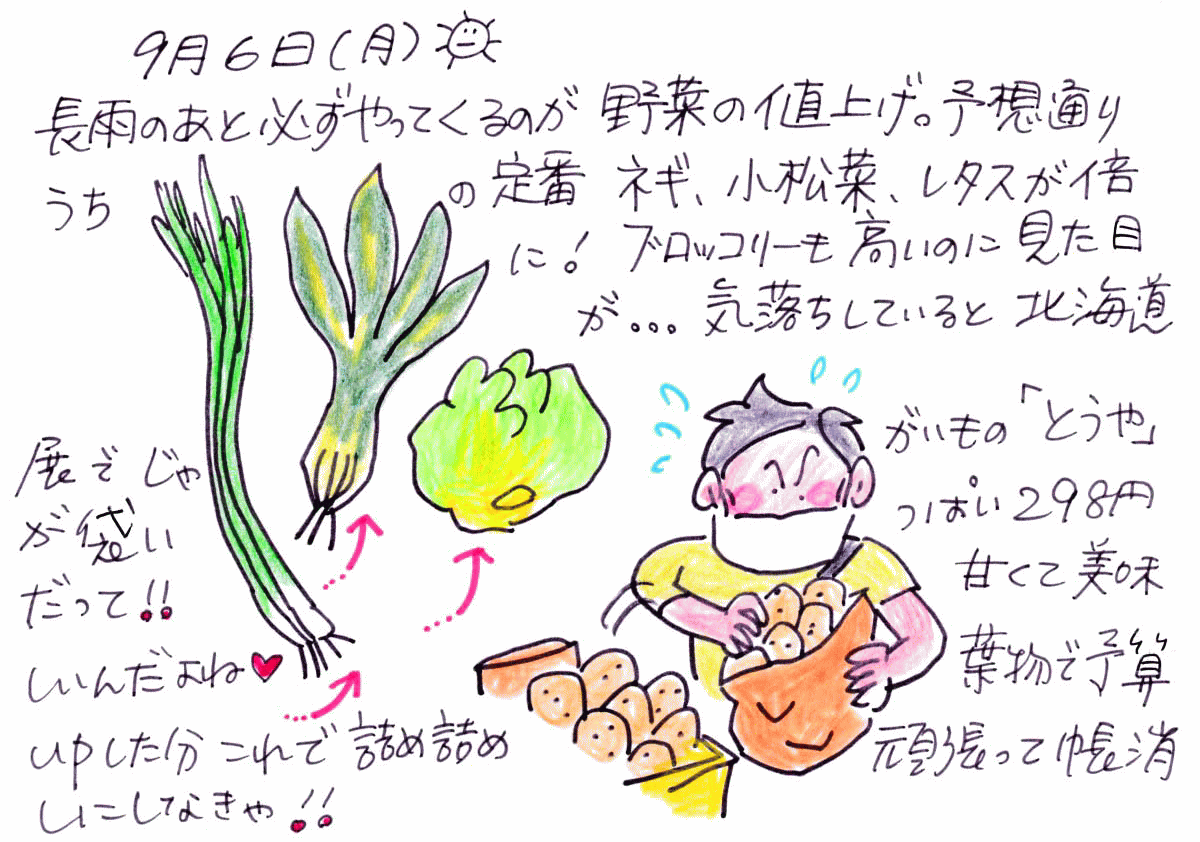 9月6日(月)
長雨のあと必ずやってくるのが 野菜の値上げ。予想通り
うち の定番 ネギ、小松菜、レタスが倍
に! ブロッコリーも高いのに見た目
が... 気落ちしていると 北海道
展でじゃ がいもの「とうや」
が袋い っぱい298円
だって!! 甘くて美味
しいんだよね♥ 葉物で予算
upした分これで詰め詰め 頑張って帳消
しにしなきゃ!!